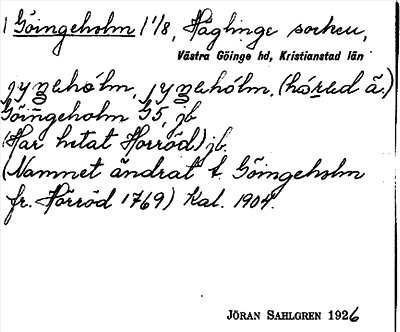 1 Göingeholm 1 1/8, Häglinge socken,
Västra Göinge hd, Kristianstad län
jyŋehólm, jyŋehólm. (hóred ä.)
Göingeholm G5, jb
(Har hetat Horröd) jb.
(Namnet ändrat t. Göingeholm
fr. Hörröd 1769) Kal. 1904.
JÖRAN SAHLGREN 1926